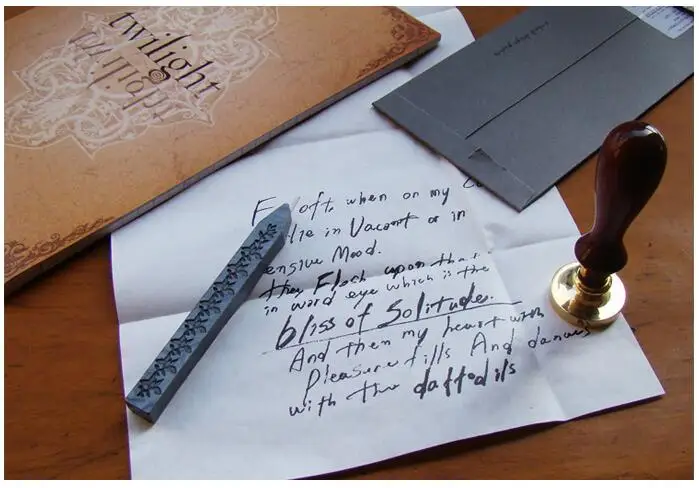 twilight
twilight
F oft, when on my
lie in Vacant or in
ensive Mood.
they Flash upon that
in ward eye which is the
bliss of Solitude.
And then my heart with
Pleasure fills And dances
with the daffodils